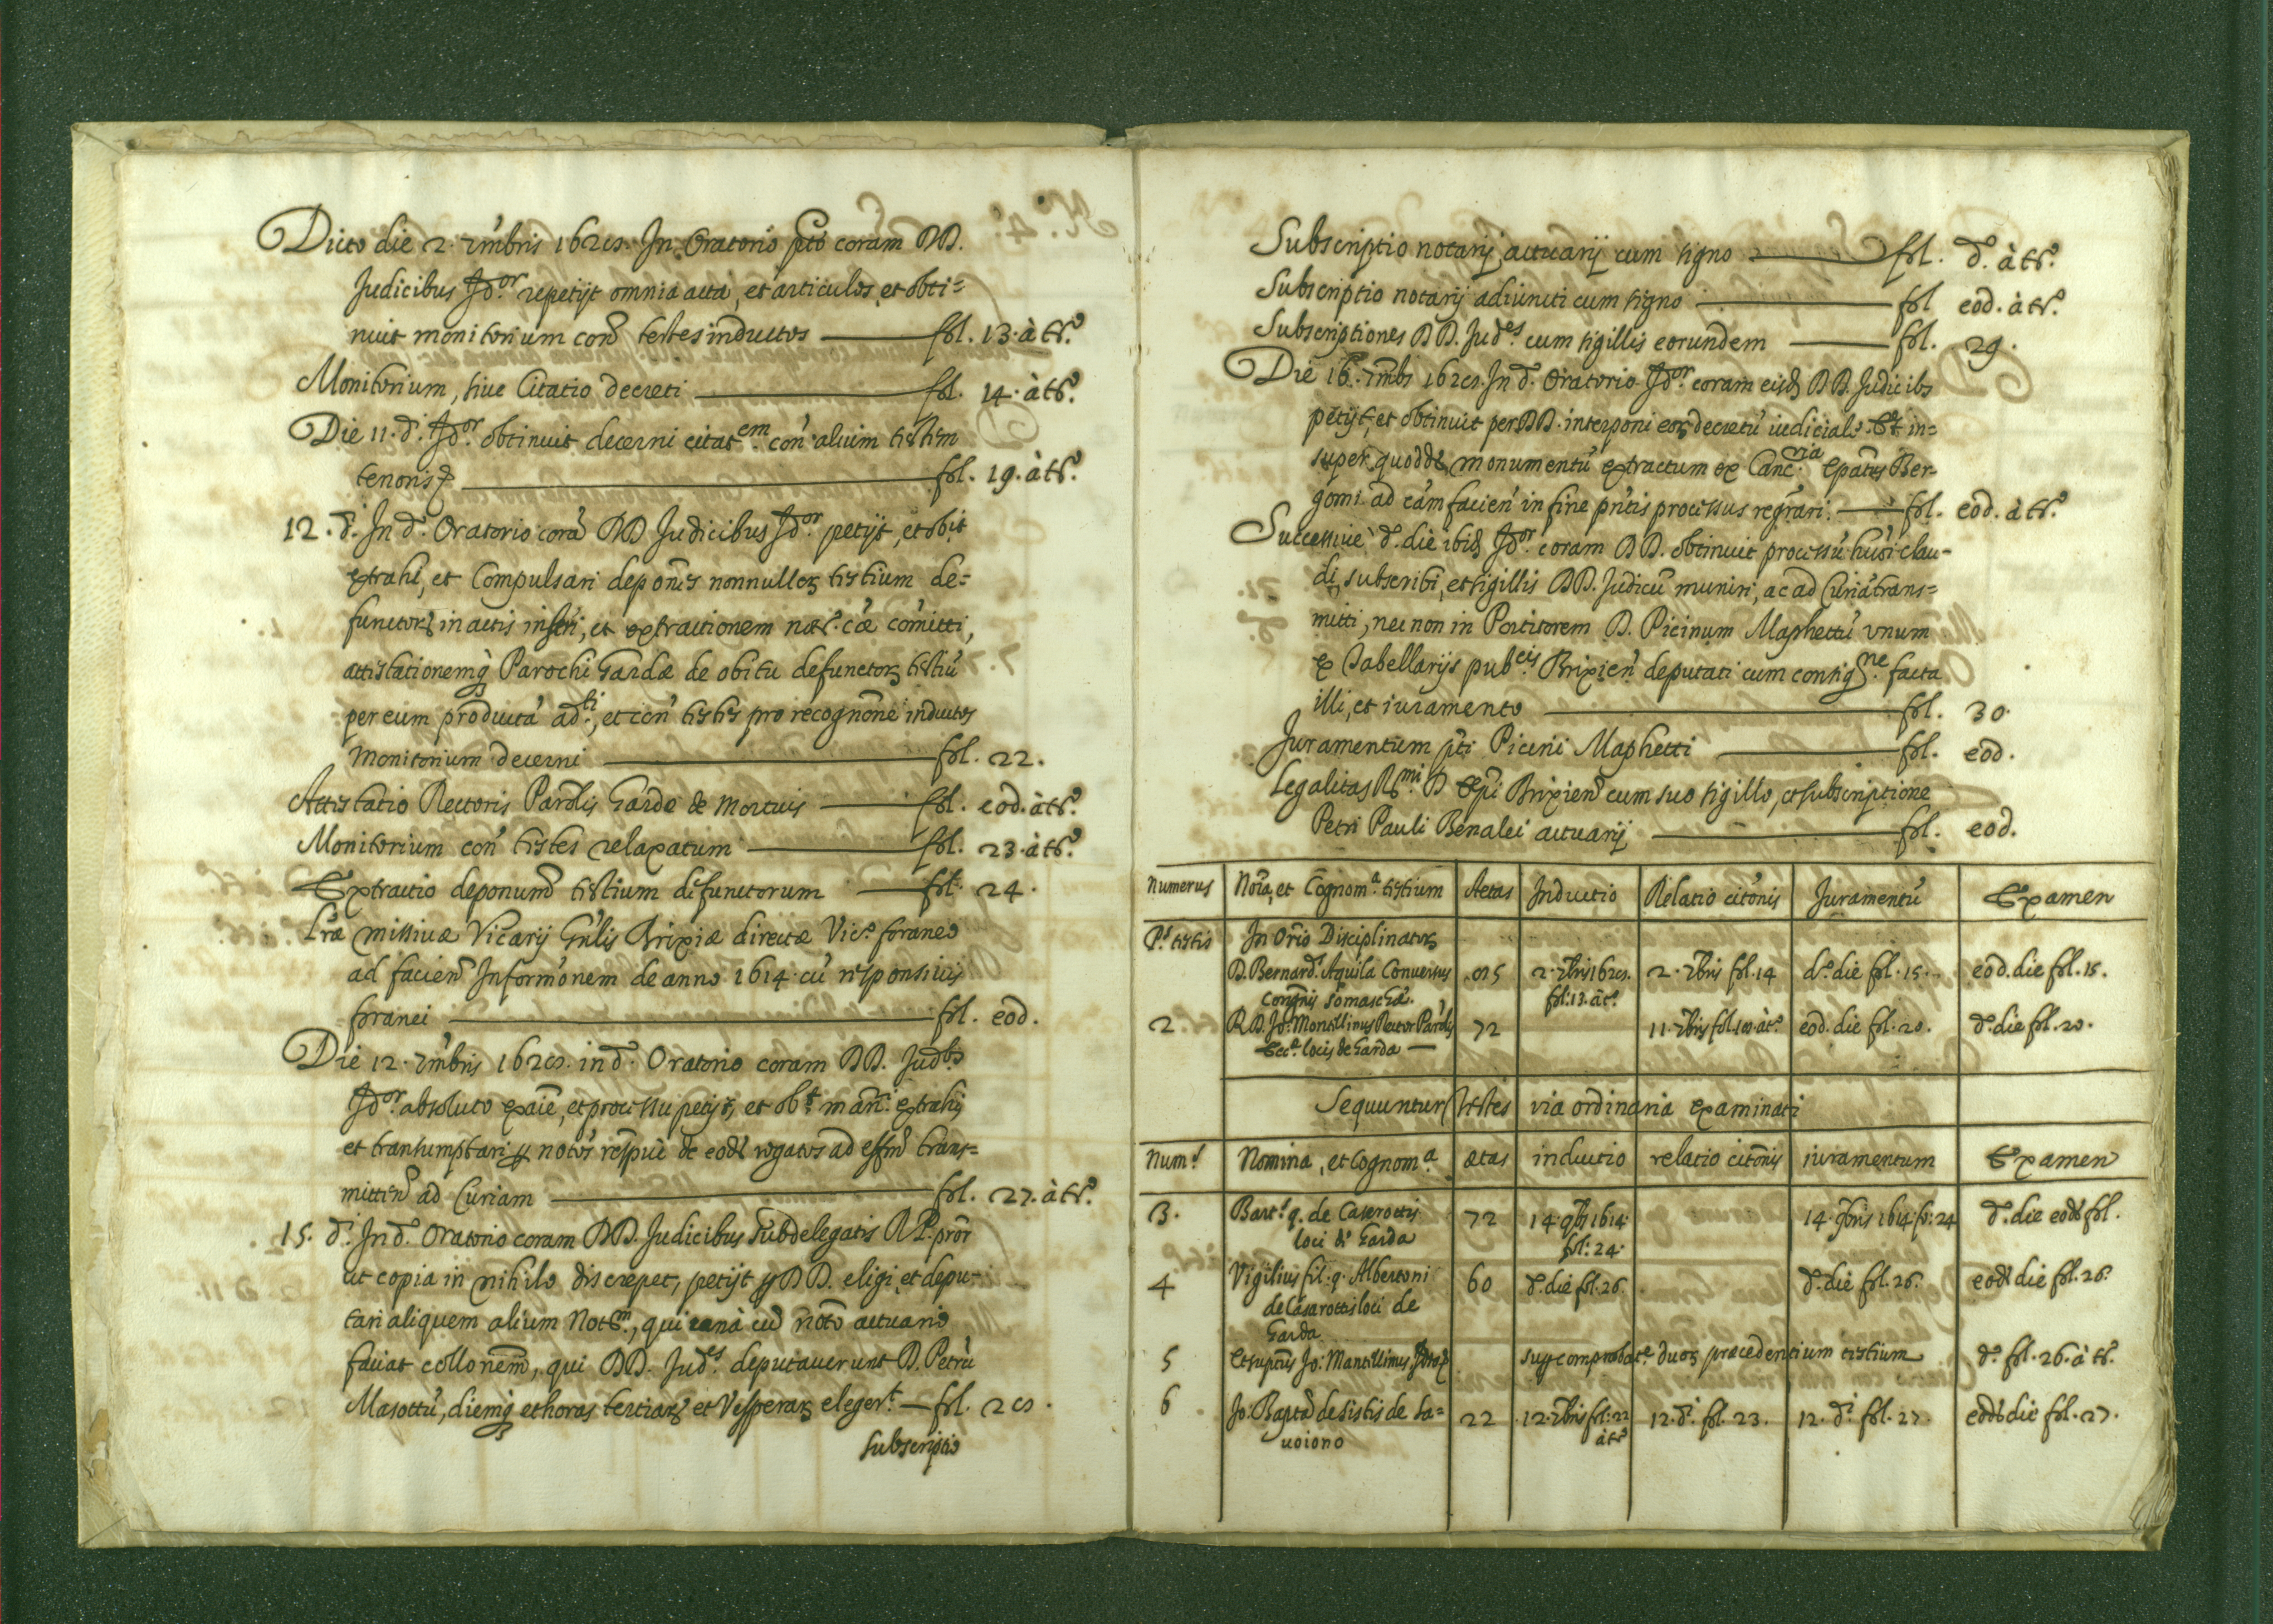 Dicto die 2. xmbris 1628. In Oratorio pto coram DD.
Judicibus Idor. repetijt omnia acta, et articulos, et obti=
nuit monitorium con testes inductos — fol. 13. à tr.°
Monitorium, siue Citatio decreti — fol. 14. à tr.°
Die 11. d. Idor. obtinuit decerni citatem. con alium testem
tenoris — fol. 19. à tr.°
12. d. In d. Oratorio corã DD Judicibus Idor. petijt, et obt
extrahi, et Compulsari deponẽs nonnullor, testium de=
functor, in actis, et extractionem comitti,
attestationemq Parochi Gardæ de obitu defunctor, testiũ
per eum productã adti., et con testes pro recognõne inductos
monitorium decerni — fol. 22.
Attestatio Rectoris Parolis Gardæ de mortuis — fol. eod. àtr.°
Monitorium con testes relaxatum — fol. 23. àtr.°
Extractio deponum testium defunctorum — fol. 24.
Lræ missiuæ Vicarij Gnlis Brixiæ directæ Vic.° foraneo
ad facien Informonem de anno 1614. cũ responsiuis
foranei — fol. eod.
Die 12. xmbris 1628. in d. Oratorio coram DD. Judbs
Idor. absoluto exaïe, et processu petijt, et obt. extrahi
et transumptari p notos de eod rogatos ad effm trans=
mitten ad Curiam — fol. 27. à tr.°
15. d. In d. Oratorio coram DD. Judicibus subdelegatis R P. pror
ut copia in nihilo discrepet, petijt p DD. eligi, et depu-
tari aliquem alium Notm., qui unà cũ noto actuario
faciat collonem, qui DD. Judes. deputauerunt D. Petrũ
Masottũ, diemq et horas tertiar, et Vesperar, elegert. — fol. 28.
subscriptio
Subscriptio notarij actuarij cum signo — fol. d.° à tr.°
Subscriptio notarij adiuncti cum signo — fol eod. à tr.°
Subscriptiones DD. Judes. cum sigillis eorundem — fol. 29.
Die 16. xmbs 1628. In d. Oratorio Idor. coram eisd DD. Judicibs
petijt, et obtinuit per DD. interponi eor, decretũ iudiciale. Et in=
super quodd monumentũ extractum ex Cancria. Epatus Ber-
gomi ad eam facien in fine pntis processus regrari. — fol. eod. à tr.°
Successiuè d. die ibid Idor. coram DD. obtinuit processũ huõi clau-
di, subscribi, et sigillis DD. Judicũ muniri, ac ad Curiã trans=
mitti, nec non in Portitorem D. Picinum Maphettũ vnum
ex Tabellarijs pubcis. Brixien deputati cum consigne. facta
illi, et iuramento — fol. 30.
Juramentum pti Picini Maphetti — fol. eod.
Legalitas Rmi. D Epi Brixien cum suo sigillo, et subscriptione
Petri Pauli Benalei actuarij — fol. eod.
Numerus Noĩa, et Cognoma. testium Aetas Inductio Relatio citõnis Juramentũ Examen
P.s testis In Orio Disciplinator,
D. Bernard. Aquila Conuersus 2. xbris 1628. 2. xbris fol. 14 d.° die fol. 15. eod. die fol. 15.
Congnis Somaschæ. fol: 13. àt.°
2 R.D. Jo: Montillinus Rector Parolis 72 11. xbris eod. die fol. 20. d. die fol. 20.
Eccæ. locis de Garda —
Sequuntur testes via ordinaria examinati
Num.s Nomina, et Cognoma. ætas inductio relatio citõnis iuramentum Examen
3. Bart.s q. de Casarottis 72 14. 9bris 1614 14. 9bris 1614. fol: 24 d. die eod fol.
loci de Garda fol: 24.
4 Vigilius fil. q. Albertoni 60 d. die fol. 26. d. die fol. 26. eod die fol. 26.
de Casarottis loci de
Garda
5 Et suptus Jo: Mantillinus sup comprobat.e duor, præcedentium testium d. fol. 26. à tr.
6 Jo: Bapta de Sistis de Sa= 22 12. xbris fol: 22 12. d. fol. 23. 12. d. fol. 27. eod die fol. 27.
uoiono àtr°